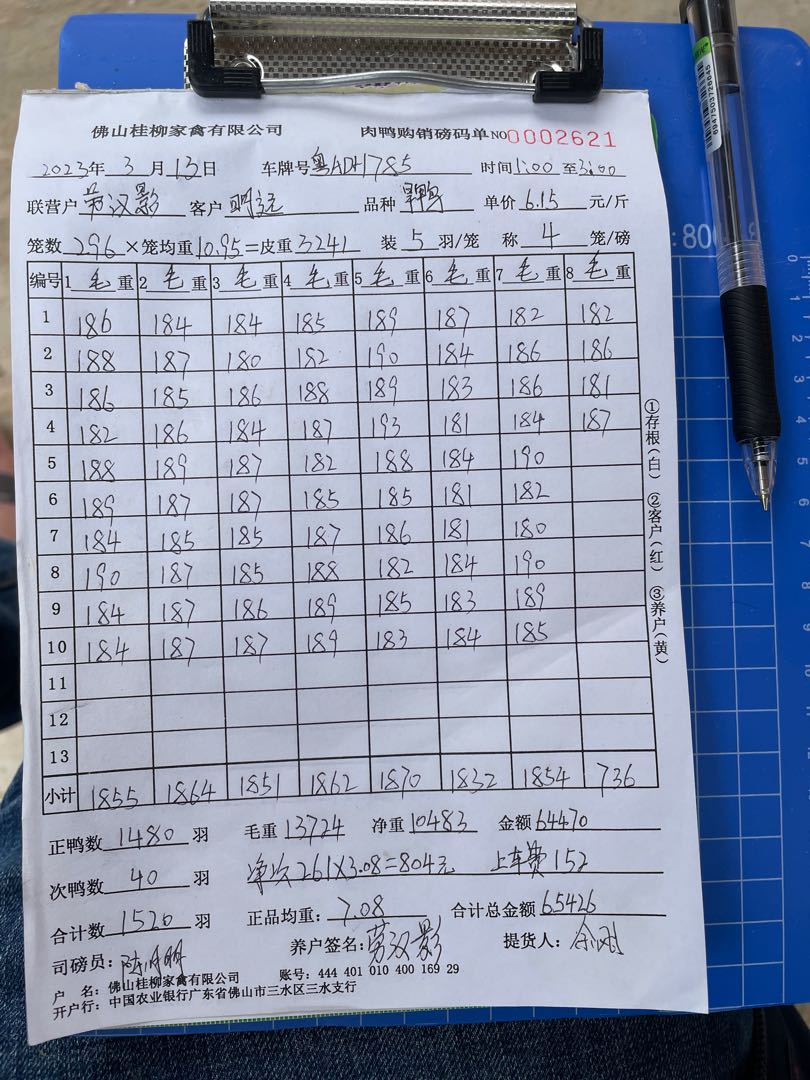 佛山桂柳家禽有限公司 肉鸭购销磅码单 NO 0002621
2023年 3月 13日 车牌号 粤ADH785 时间 1:00 至 3:00
联营户 劳汉影 客户 明 品种 鸭 单价 6.15 元/斤
笼数 296 ×笼均重 10.95 =皮重 3241 装 5 羽/笼 称 4 笼/磅
编号 1毛重 2毛重 3毛重 4毛重 5毛重 6毛重 7毛重 8毛重
1 186 184 184 185 189 187 182 182
2 188 187 180 182 190 184 186 186
3 186 185 186 188 189 183 186 181
4 182 186 184 187 193 181 184 187
5 188 189 187 182 188 184 190
6 189 187 187 185 185 181 182
7 184 185 185 187 186 181 180
8 190 187 185 188 182 184 190
9 184 187 186 189 185 183 189
10 184 187 187 189 183 184 185
11
12
13
小计 1855 1864 1851 1862 1870 1832 1854 736
①存根(白) ②客户(红) ③养户(黄)
正鸭数 1480 羽 毛重 13724 净重 10483 金额 64470
次鸭数 40 羽 净次 261×3.08=804元 上车费 152
合计数 1520 羽 正品均重: 7.08 合计总金额 65426
司磅员: 养户签名: 劳汉影 提货人:
户 名: 佛山桂柳家禽有限公司 账号: 444 401 010 400 169 29
开户行: 中国农业银行广东省佛山市三水区三水支行
6947503726645
:800